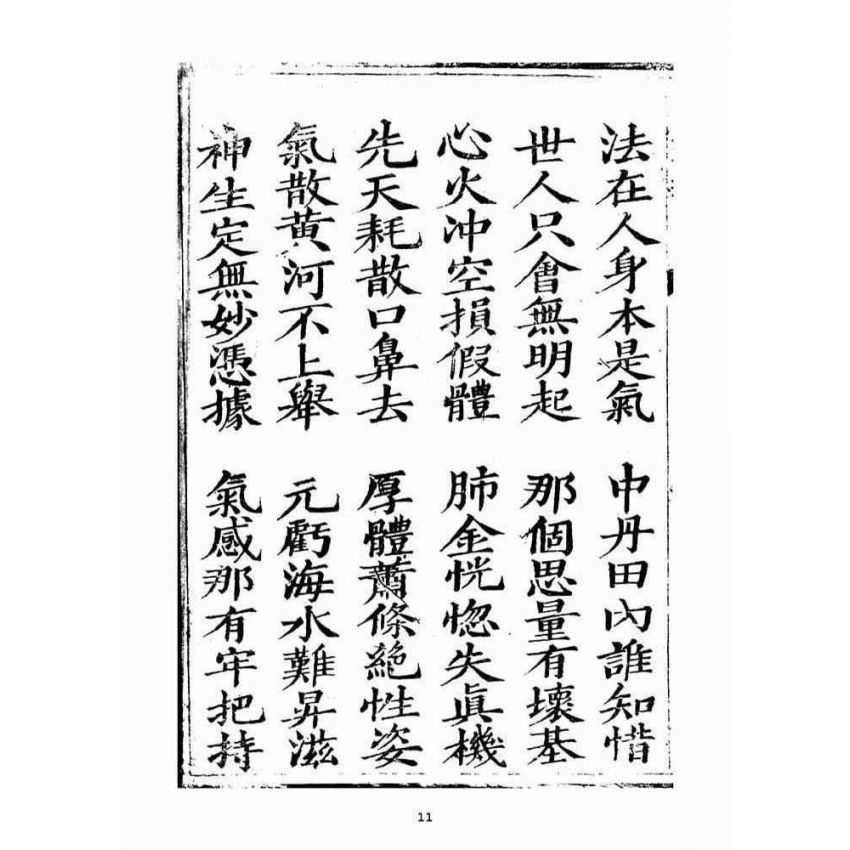 法在人身本是氣　中丹田內誰知惜
世人只會無明起　那個思量有壞基
心火冲空損假體　肺金恍惚失真機
先天耗散口鼻去　厚體蕭條絕性姿
氣散黃河不上舉　元虧海水難昇滋
神生定無妙憑據　氣感那有牢把持
11